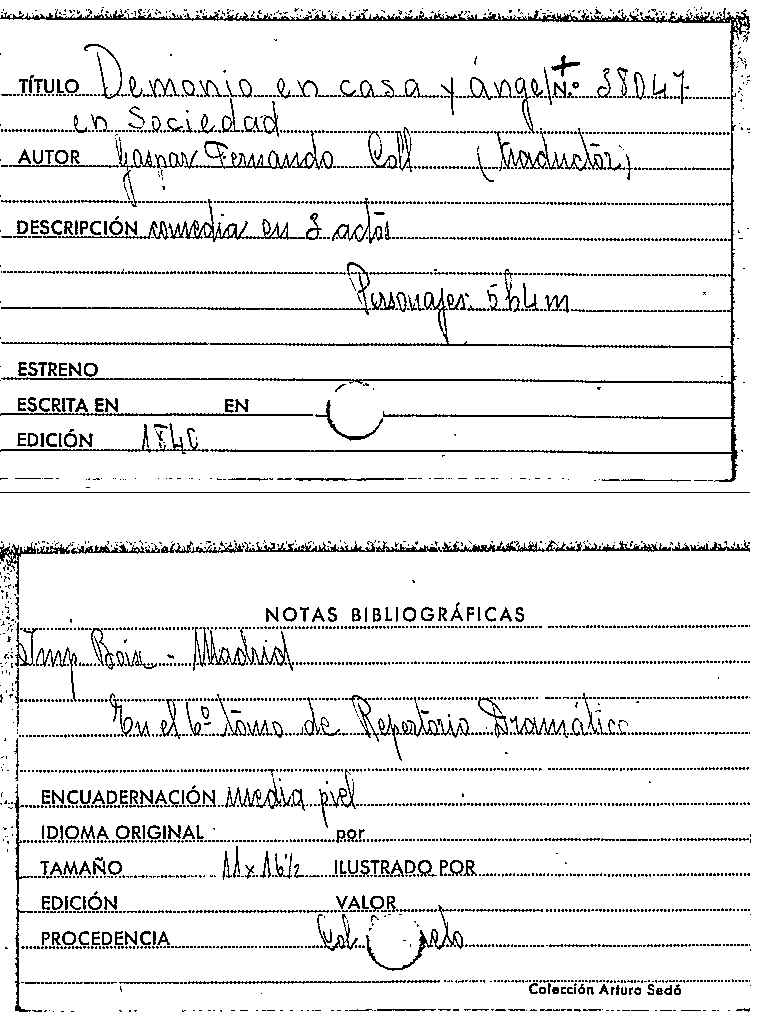 TÍTULO Demonio en casa y ángel N.º 38047
en Sociedad
AUTOR Gaspar Fernando Coll (traductor)
DESCRIPCIÓN comedia en 3 actos
Personajes: 5h4m
ESTRENO
ESCRITA EN EN
EDICIÓN 1840
NOTAS BIBLIOGRÁFICAS
Imp Boix - Madrid
En el 6º tomo de Repertorio Dramático
ENCUADERNACIÓN media piel
IDIOMA ORIGINAL por
TAMAÑO 11x16½ ILUSTRADO POR
EDICIÓN VALOR
PROCEDENCIA Col.
Colección Arturo Sedó